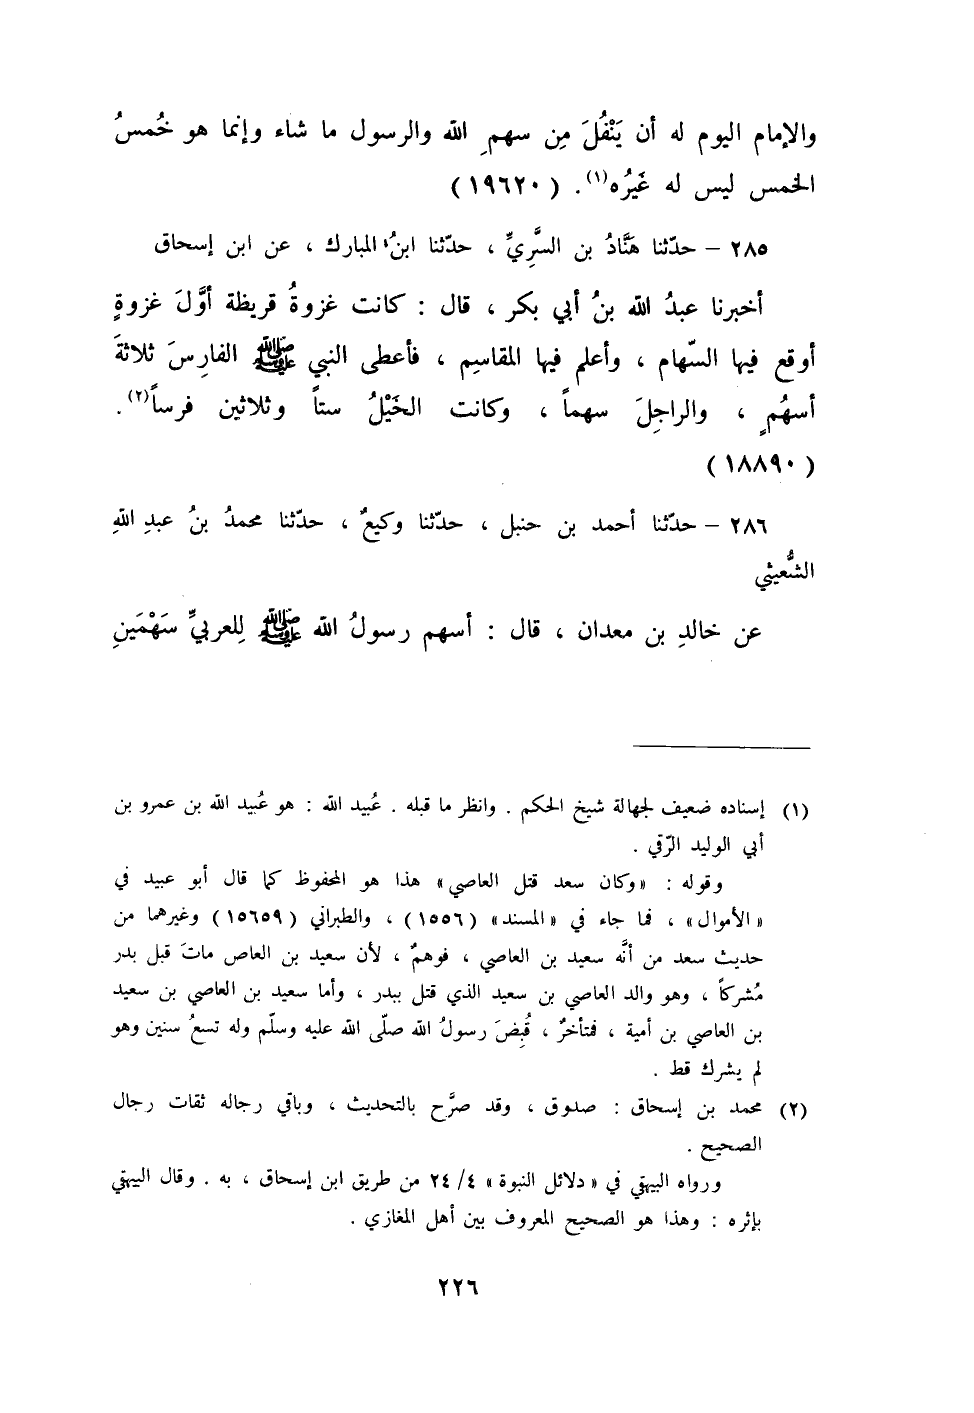 والإمام اليوم له أن يَنْفُلَ مِن سهمِ الله والرسول ما شاء وإنما هو خُمسُ
الخمس ليس له غَيْرُه(١). (١٩٦٢٠)
٢٨٥ – حدّثنا هَنَّادُ بن السَّرِيِّ ، حدّثنا ابنُ المبارك ، عن ابن إسحاق
أخبرنا عبدُ الله بنُ أبي بكر ، قال : كانت غزوةُ قريظة أوَّلَ غزوةٍ
أوقع فيها السّهام ، وأعلم فيها المقاسِم ، فأعطى النبي ﷺ الفارِسَ ثلاثةَ
أسهُمٍ ، والراجِلَ سهماً ، وكانت الخَيْلُ ستاً وثلاثين فرساً(٢).
(١٨٨٩٠)
٢٨٦ – حدّثنا أحمد بن حنبل ، حدّثنا وكيعٌ ، حدّثنا محمدُ بنُ عبدِ اللهِ
الشُّعيثي
عن خالدِ بن معدان ، قال : أسهم رسولُ الله ﷺ لِلعربيِّ سَهْمَينِ
(١) إسناده ضعيف لجهالة شيخ الحكم . وانظر ما قبله . عُبيد الله : هو عُبيد الله بن عمرو بن
أبي الوليد الرّقي .
وقوله : «وكان سعد قتل العاصي» هذا هو المحفوظ كما قال أبو عبيد في
«الأموال» ، فما جاء في «المسند» (١٥٥٦) ، والطبراني (١٥٦٥٩) وغيرهما من
حديث سعد من أنَّه سعيد بن العاصي ، فوهمٌ ، لأن سعيد بن العاص ماتَ قبل بدر
مُشركاً ، وهو والد العاصي بن سعيد الذي قتل ببدر ، وأما سعيد بن العاصي بن سعيد
بن العاصي بن أمية ، فمتأخرٌ ، قُبِضَ رسولُ الله صلّى الله عليه وسلّم وله تسعُ سنين وهو
لم يشرك قط .
(٢) محمد بن إسحاق : صدوق ، وقد صرَّح بالتحديث ، وباقي رجاله ثقات رجال
الصحيح .
ورواه البيهقي في «دلائل النبوة» ٢٤/٤ من طريق ابن إسحاق ، به . وقال البيهقي
بإثره : وهذا هو الصحيح المعروف بين أهل المغازي .
٢٢٦